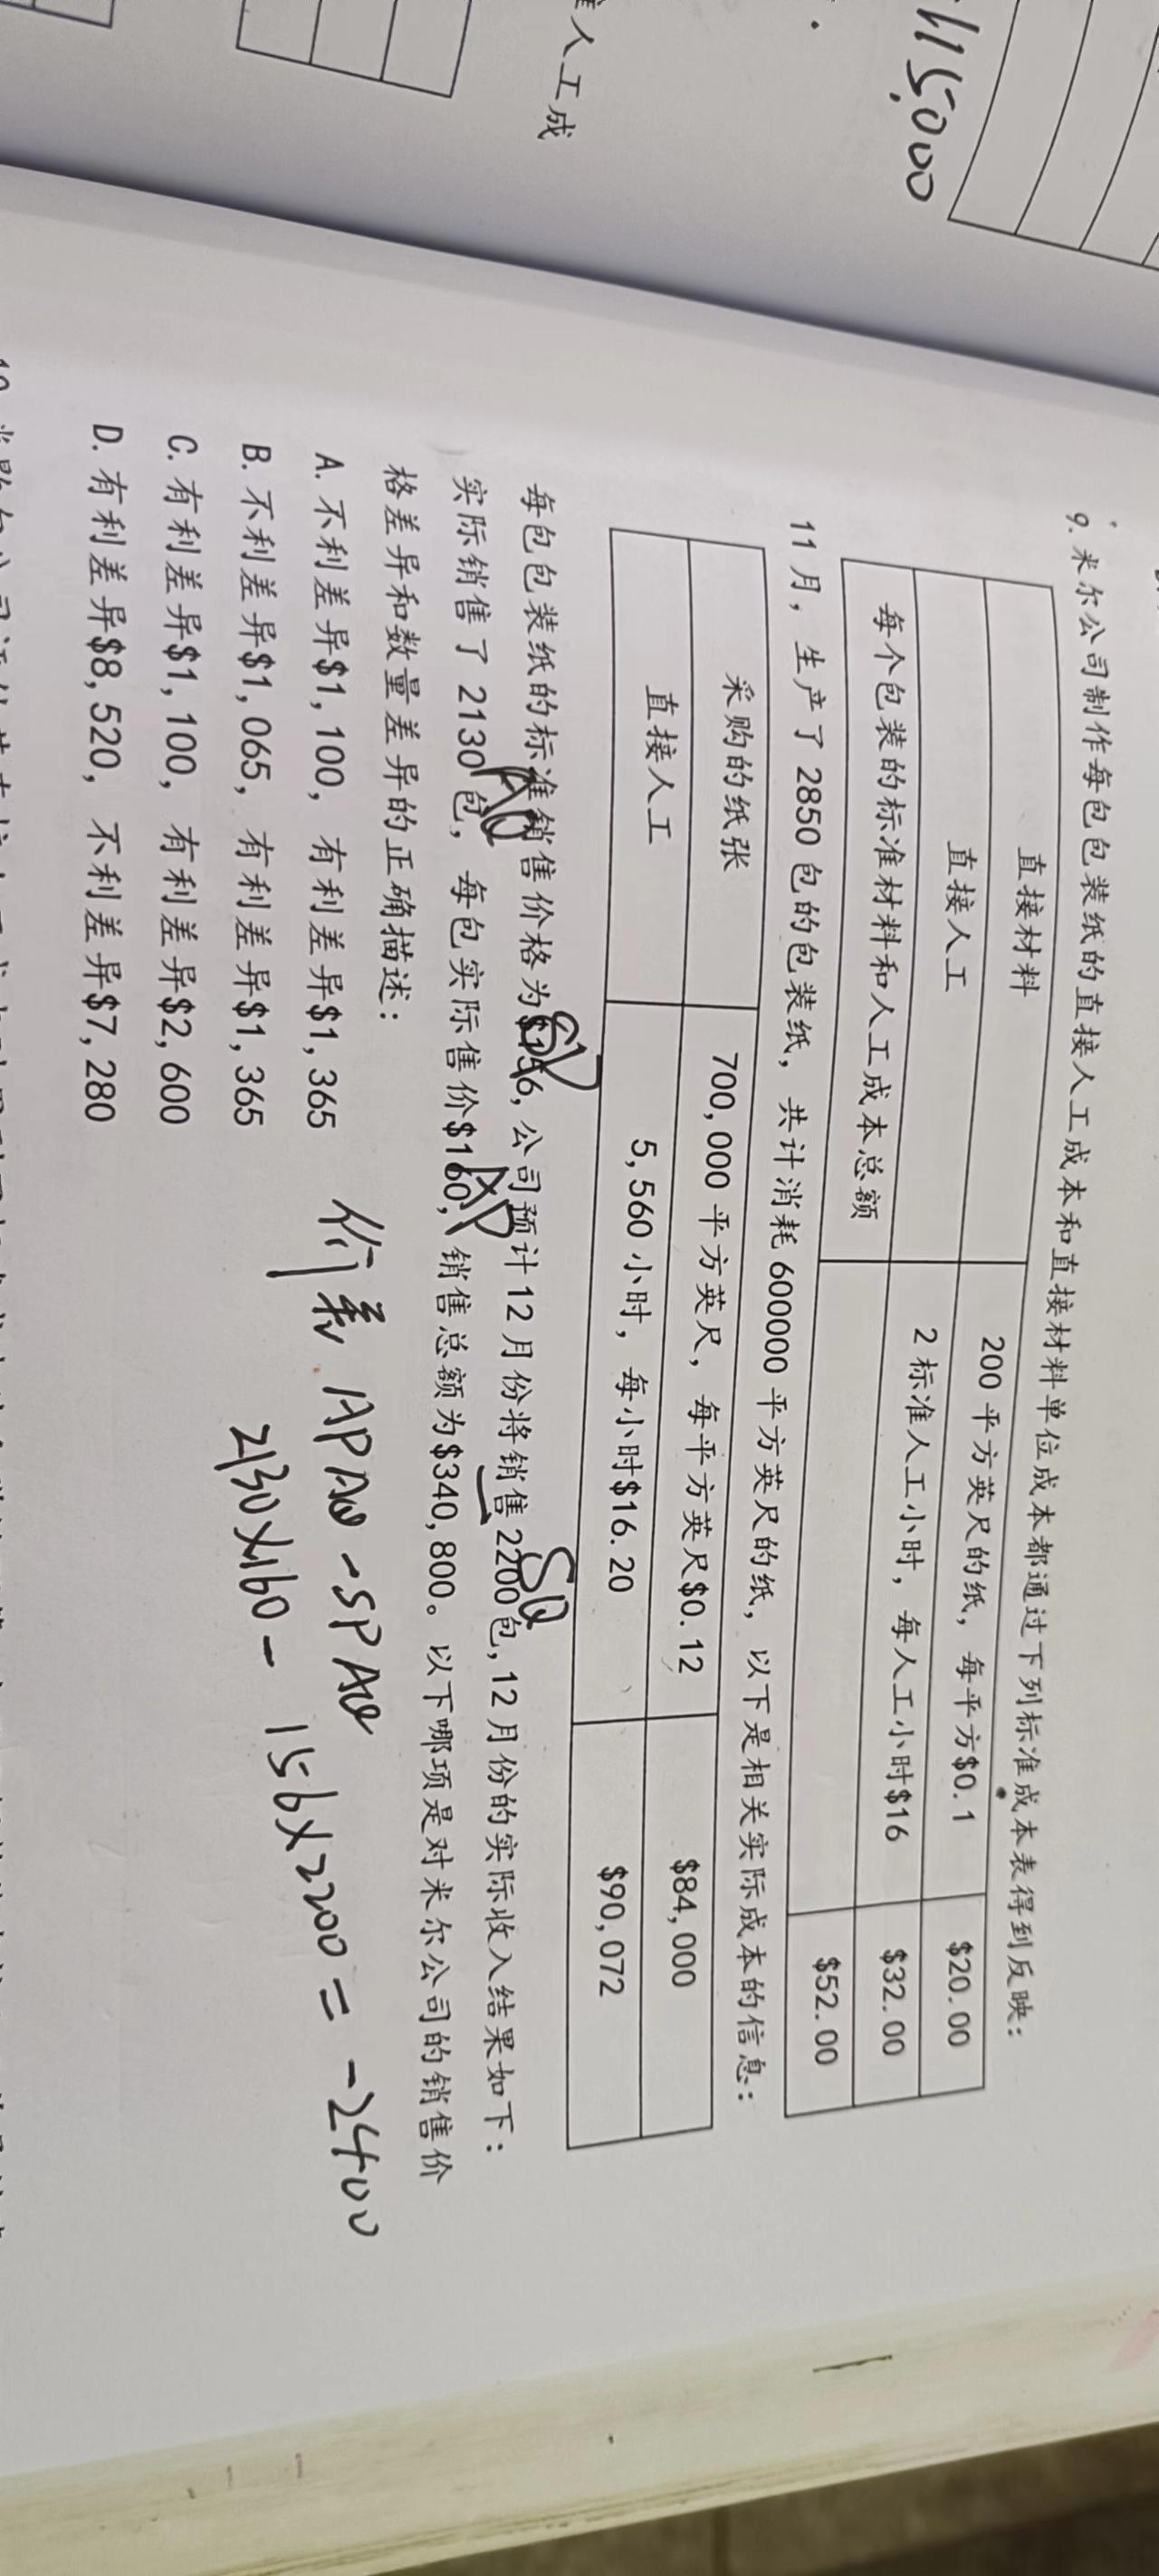 115,000
隹人工成
9. 米尔公司制作每包包装纸的直接人工成本和直接材料单位成本都通过下列标准成本表得到反映:
直接材料 200 平方英尺的纸, 每平方$0.1 $20.00
直接人工 2 标准人工小时, 每人工小时$16 $32.00
每个包装的标准材料和人工成本总额 $52.00
11 月, 生产了 2850 包的包装纸, 共计消耗 600000 平方英尺的纸, 以下是相关实际成本的信息:
采购的纸张 700,000 平方英尺, 每平方英尺$0.12 $84,000
直接人工 5,560 小时, 每小时$16.20 $90,072
SP
SQ
每包包装纸的标准销售价格为$156, 公司预计 12 月份将销售 2200 包, 12 月份的实际收入结果如下:
AQ
AP
实际销售了 2130 包, 每包实际售价$160, 销售总额为$340,800。以下哪项是对米尔公司的销售价
格差异和数量差异的正确描述:
A. 不利差异$1,100, 有利差异$1,365
B. 不利差异$1,065, 有利差异$1,365
C. 有利差异$1,100, 有利差异$2,600
D. 有利差异$8,520, 不利差异$7,280
价差 APAQ - SPAQ
2130×160 - 156×2200 = -2400